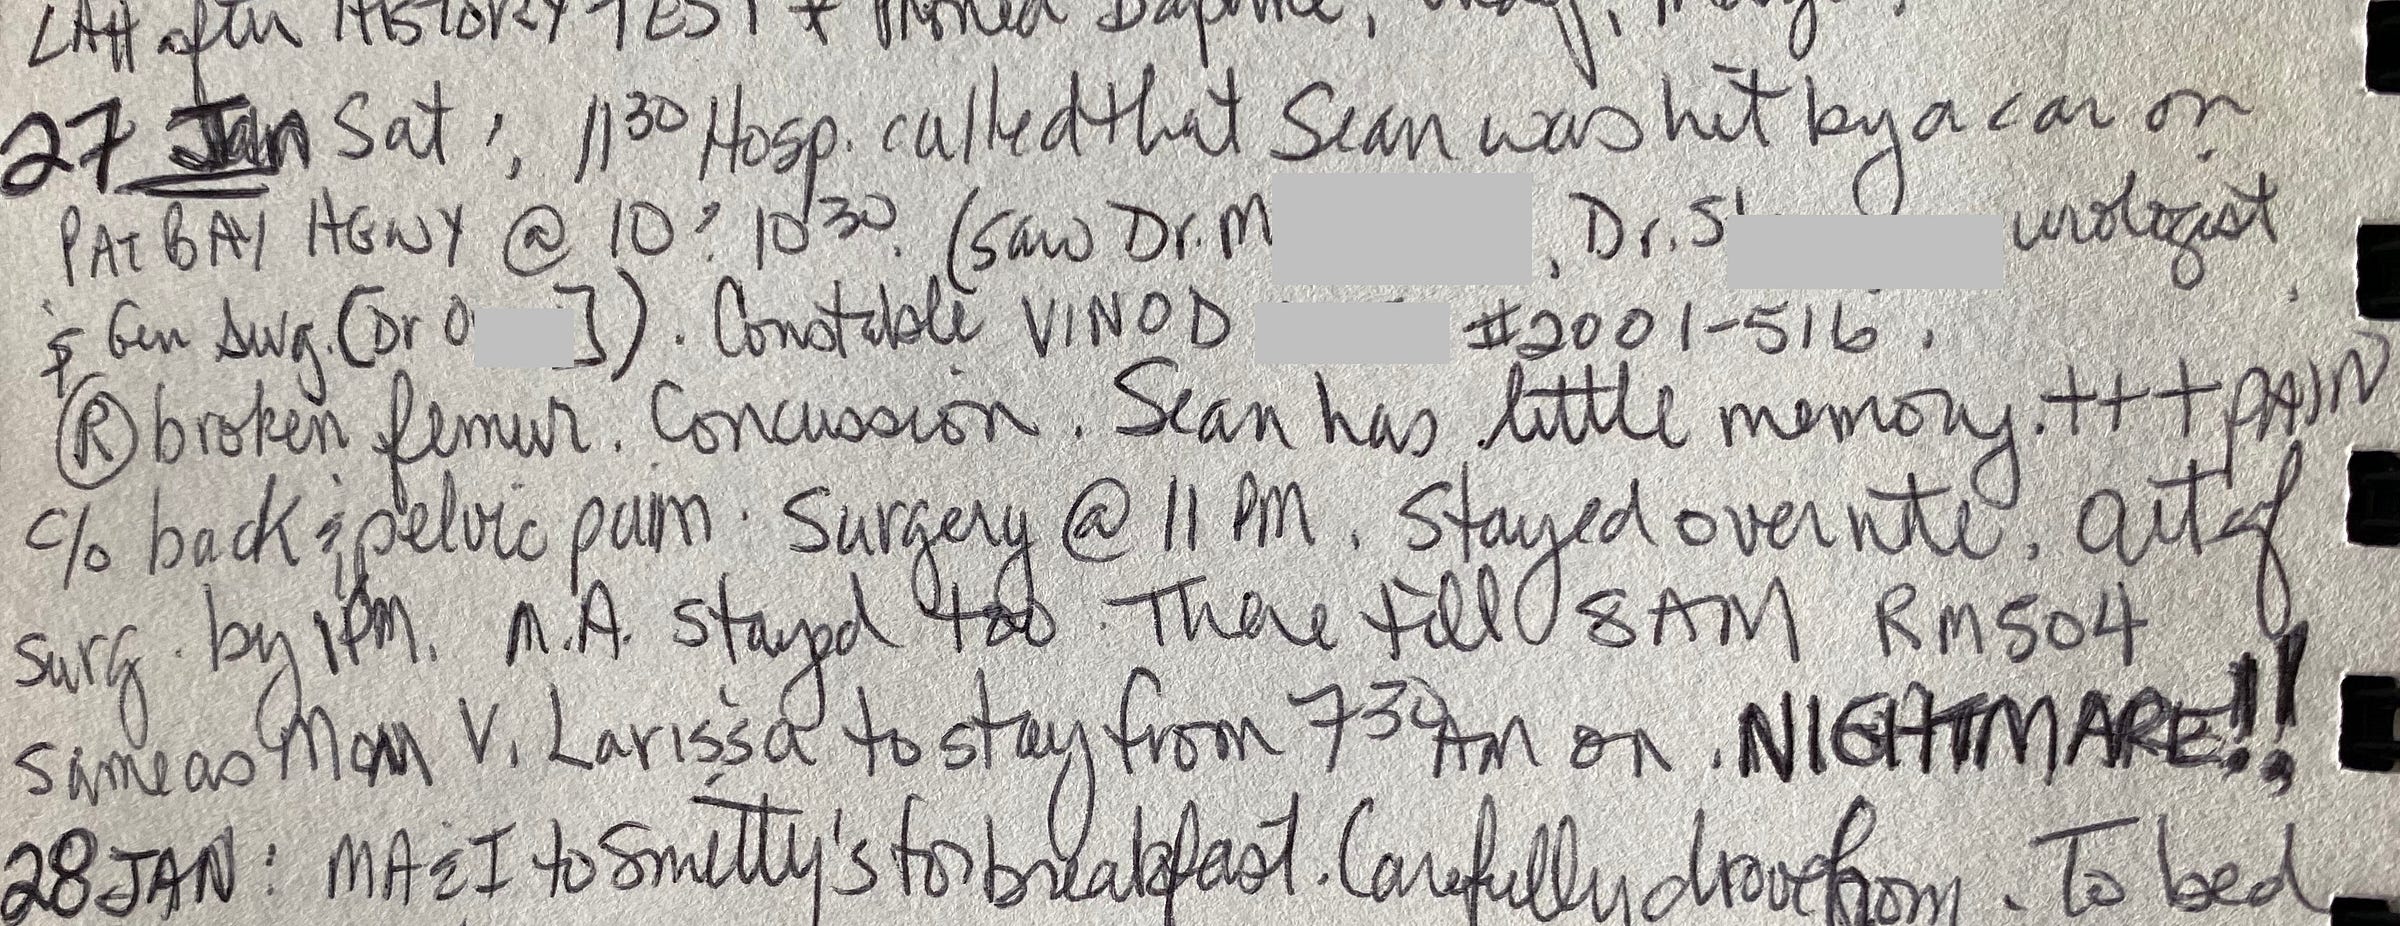 LAH after HISTORY TEST & Phoned Daphne,
27 Jan Sat ; 11³⁰ Hosp. called that Sean was hit by a car on
PAT BAY HGWY @ 10? 10³⁰. (saw Dr. M , Dr. S urologist
& Gen Surg. [Dr O ]). Constable VINOD #2001-516.
Ⓡ broken femur. Concussion. Sean has little memory. +++ PAIN
c/o back & pelvic pain. Surgery @ 11 PM. Stayed overnite. Out of
surg. by 1PM. M.A. stayed too. There till 8AM RM504
same as Mom V. Larissa to stay from 7³⁰AM on. NIGHTMARE!!
28 JAN: MA & I to Smitty's for breakfast. Carefully drove hom. To bed